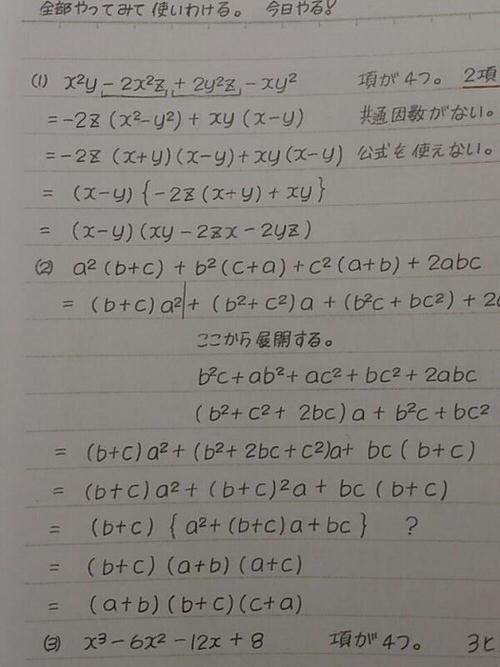 全部やってみて使いわける。 今日やる!
(1) x²y - 2x²z + 2y²z - xy² 項が4つ。 2項
= -2z (x²-y²) + xy (x-y) 共通因数がない。
= -2z (x+y)(x-y)+xy(x-y) 公式を使えない。
= (x-y) {-2z(x+y) + xy}
= (x-y) (xy - 2zx - 2yz)
(2) a² (b+c) + b² (c+a) + c² (a+b) + 2abc
= (b+c) a² + (b²+c²) a + (b²c + bc²) + 2a
ここから展開する。
b²c + ab² + ac² + bc² + 2abc
(b²+c²+ 2bc) a + b²c + bc²
= (b+c) a² + (b²+ 2bc + c²)a + bc (b+c)
= (b+c) a² + (b+c)²a + bc (b+c)
= (b+c) { a² + (b+c)a + bc } ?
= (b+c) (a+b) (a+c)
= (a+b) (b+c) (c+a)
(3) x³ - 6x² - 12x + 8 項が4つ。 3と